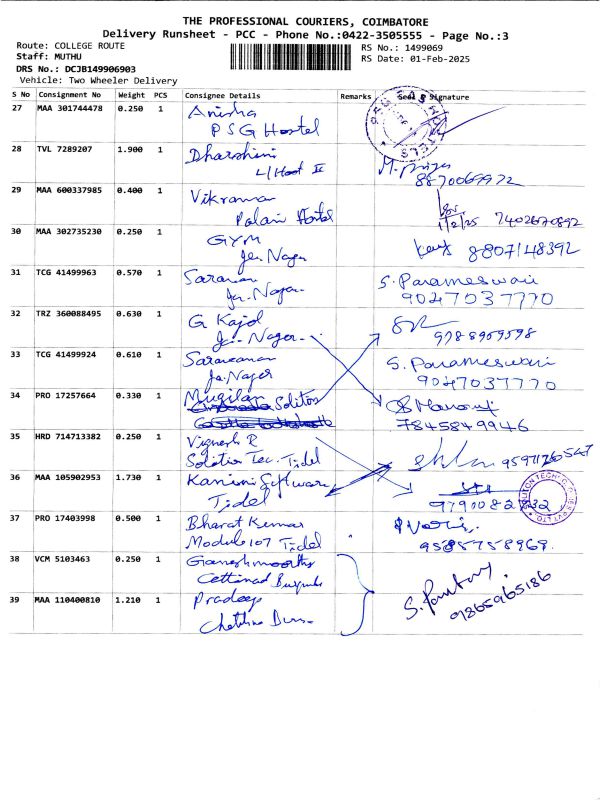 THE PROFESSIONAL COURIERS, COIMBATORE
Delivery Runsheet - PCC - Phone No.:0422-3505555 - Page No.:3
Route: COLLEGE ROUTE
RS No.: 1499069
Staff: MUTHU
RS Date: 01-Feb-2025
DRS No.: DCJB149906903
Vehicle: Two Wheeler Delivery
S No Consignment No Weight PCS Consignee Details Remarks Seal & Signature
27 MAA 301744478 0.250 1 Anisha
PSG Hostel
28 TVL 7289207 1.900 1 Dharshini
II
8870069972
29 MAA 600337985 0.400 1 Vikraman
Palani Hostel
1/2/25 7402670892
30 MAA 302735230 0.250 1 GYM
Jer. Nager
8807148392
31 TCG 41499963 0.570 1 Saravanan
Jer. Nagar
S. Parameswari
9047037770
32 TRZ 360088495 0.630 1 G Kajol
Jer. Nager
9788909598
33 TCG 41499924 0.610 1 Saravanan
Je. Nager
S. Parameswari
9047037770
34 PRO 17257664 0.330 1 Mugilan
Soliton
7845849946
35 HRD 714713382 0.250 1 Vignesh R
Soliton Tec. Tidel
36 MAA 105902953 1.730 1 Kanini Software
Tidel
37 PRO 17403998 0.500 1 Bharat Kumar
Module 107 Tidel
38 VCM 5103463 0.250 1 Ganeshmoorthy
Cettinad
39 MAA 110400810 1.210 1 Pradeep
9865965186